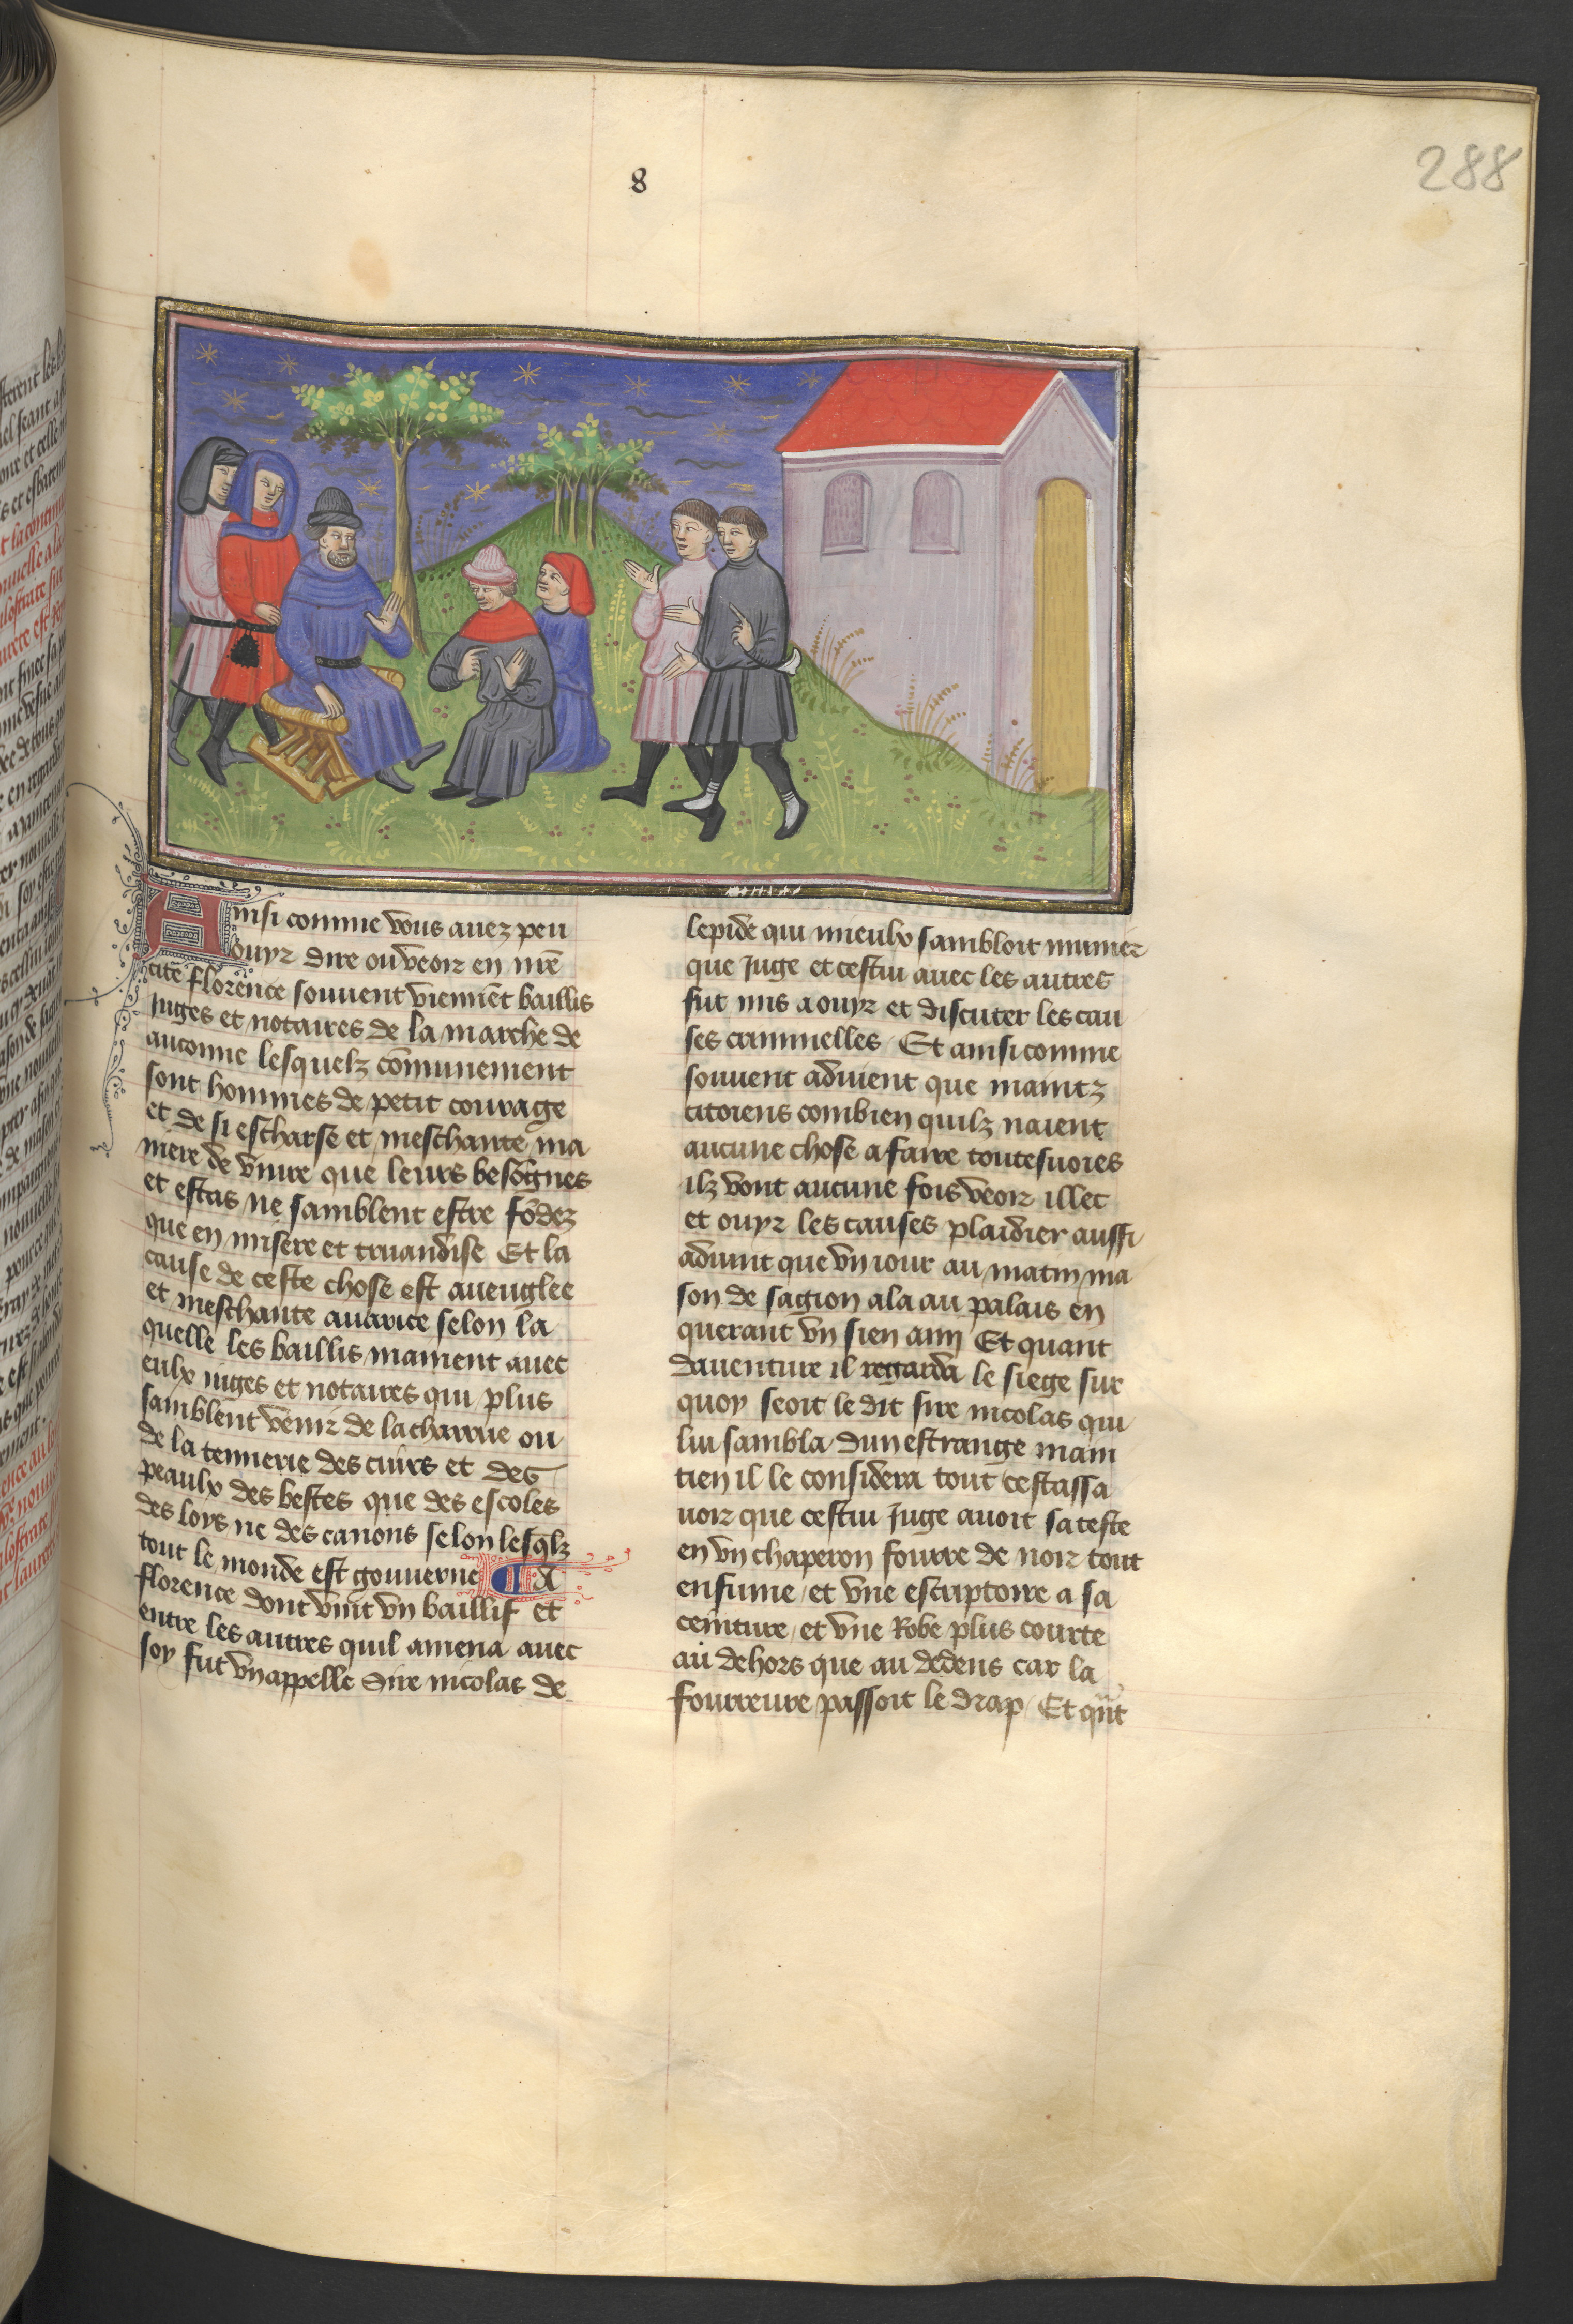 8
288
Ainsi comme vous auez peu
ouyr dire ou veoir en nr̄e
cite florence souuent viennēt baillis
Juges et notaires de la marche de
anconne lesquelz cōmunement
sont hommes de petit courage
et de si escharse et meschante ma
niere de viure que leurs besongnes
et estas ne samblent estre fōdez
que en misere et truandise Et la
cause de ceste chose est aueuglee
et meschante auarice selon la
quelle les baillis mainent auec
eulx iuges et notaires qui plus
samblent venir de la charrue ou
de la tennerie des cuirs et des
peaulx des bestes que des escoles
des loys ne des canons selon lesq̄lz
tout le monde est gouuerne A
florence dont vint vn baillif et
entre les autres quil amena auec
soy fut vn appelle Sire nicolas de
lepide qui mieulx sambloit munier
que Juge et cestui auec les autres
fut mis a ouyr et discuter les cau
ses criminelles Et ainsi comme
souuent aduient que maintz
citoiens combien quilz naient
aucune chose a faire toutesuoies
ilz vont aucune fois veoir illec
et ouyr les causes plaidier aussi
aduint que vn iour au matin ma
son de sagion ala au palais en
querant vn sien amy Et quant
dauenture il regarda le siege sur
quoy seoit le dit sire nicolas qui
lui sambla dun estrange main
tien il le considera tout cestassa
uoir que cestui Juge auoit sa teste
en vn chaperon fourre de noir tout
enfume et vne escriptoire a sa
ceinture et vne Robe plus courte
au dehors que au dedens car la
fourreure passoit le drap Et qn̄t